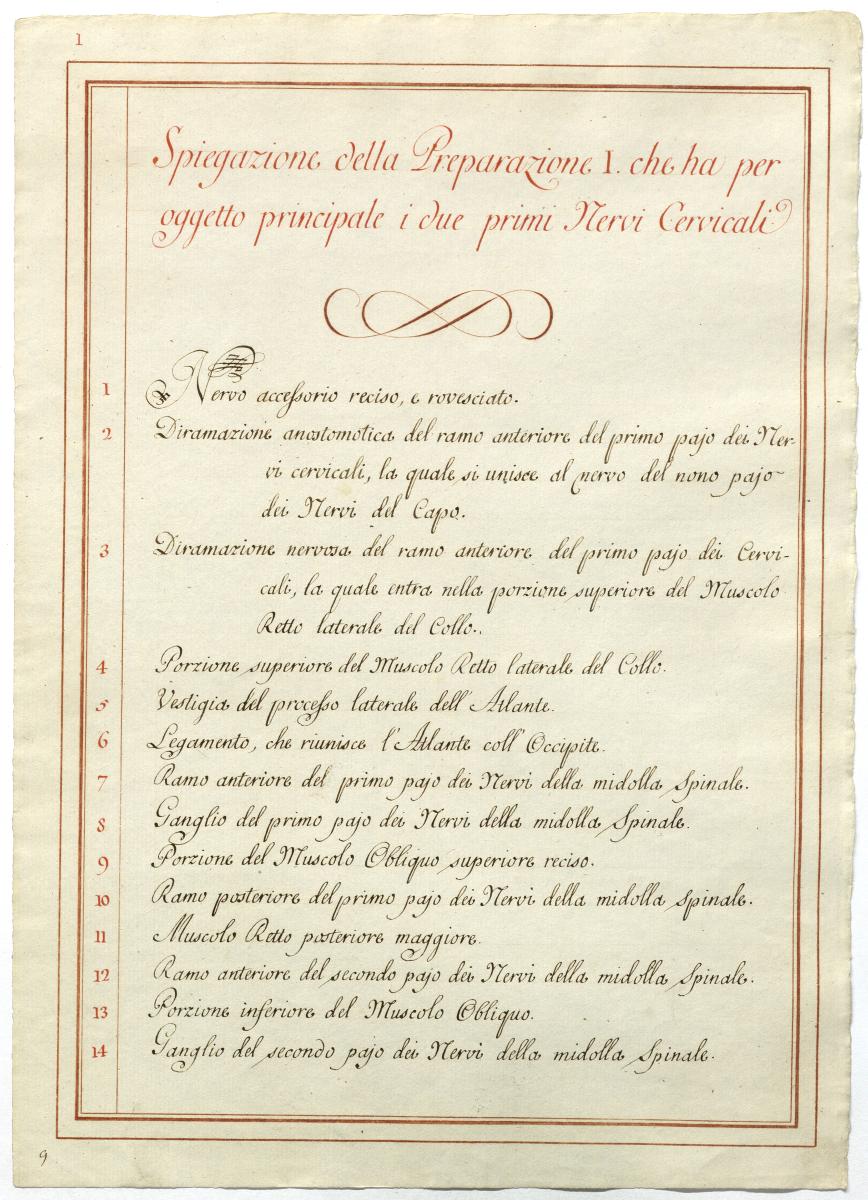 1
Spiegazione della Preparazione I. che ha per
oggetto principale i due primi Nervi Cervicali
1 Nervo accessorio reciso, e rovesciato.
2 Diramazione anostomotica del ramo anteriore del primo pajo dei Ner-
vi cervicali, la quale si unisce al nervo del nono pajo
dei Nervi del Capo.
3 Diramazione nervosa del ramo anteriore del primo pajo dei Cervi-
cali, la quale entra nella porzione superiore del Muscolo
Retto laterale del Collo.
4 Porzione superiore del Muscolo Retto laterale del Collo.
5 Vestigia del processo laterale dell'Atlante.
6 Legamento, che riunisce l'Atlante coll'Occipite.
7 Ramo anteriore del primo pajo dei Nervi della midolla Spinale.
8 Ganglio del primo pajo dei Nervi della midolla Spinale.
9 Porzione del Muscolo Obliquo superiore reciso.
10 Ramo posteriore del primo pajo dei Nervi della midolla spinale.
11 Muscolo Retto posteriore maggiore.
12 Ramo anteriore del secondo pajo dei Nervi della midolla Spinale.
13 Porzione inferiore del Muscolo Obliquo.
14 Ganglio del secondo pajo dei Nervi della midolla Spinale.
9